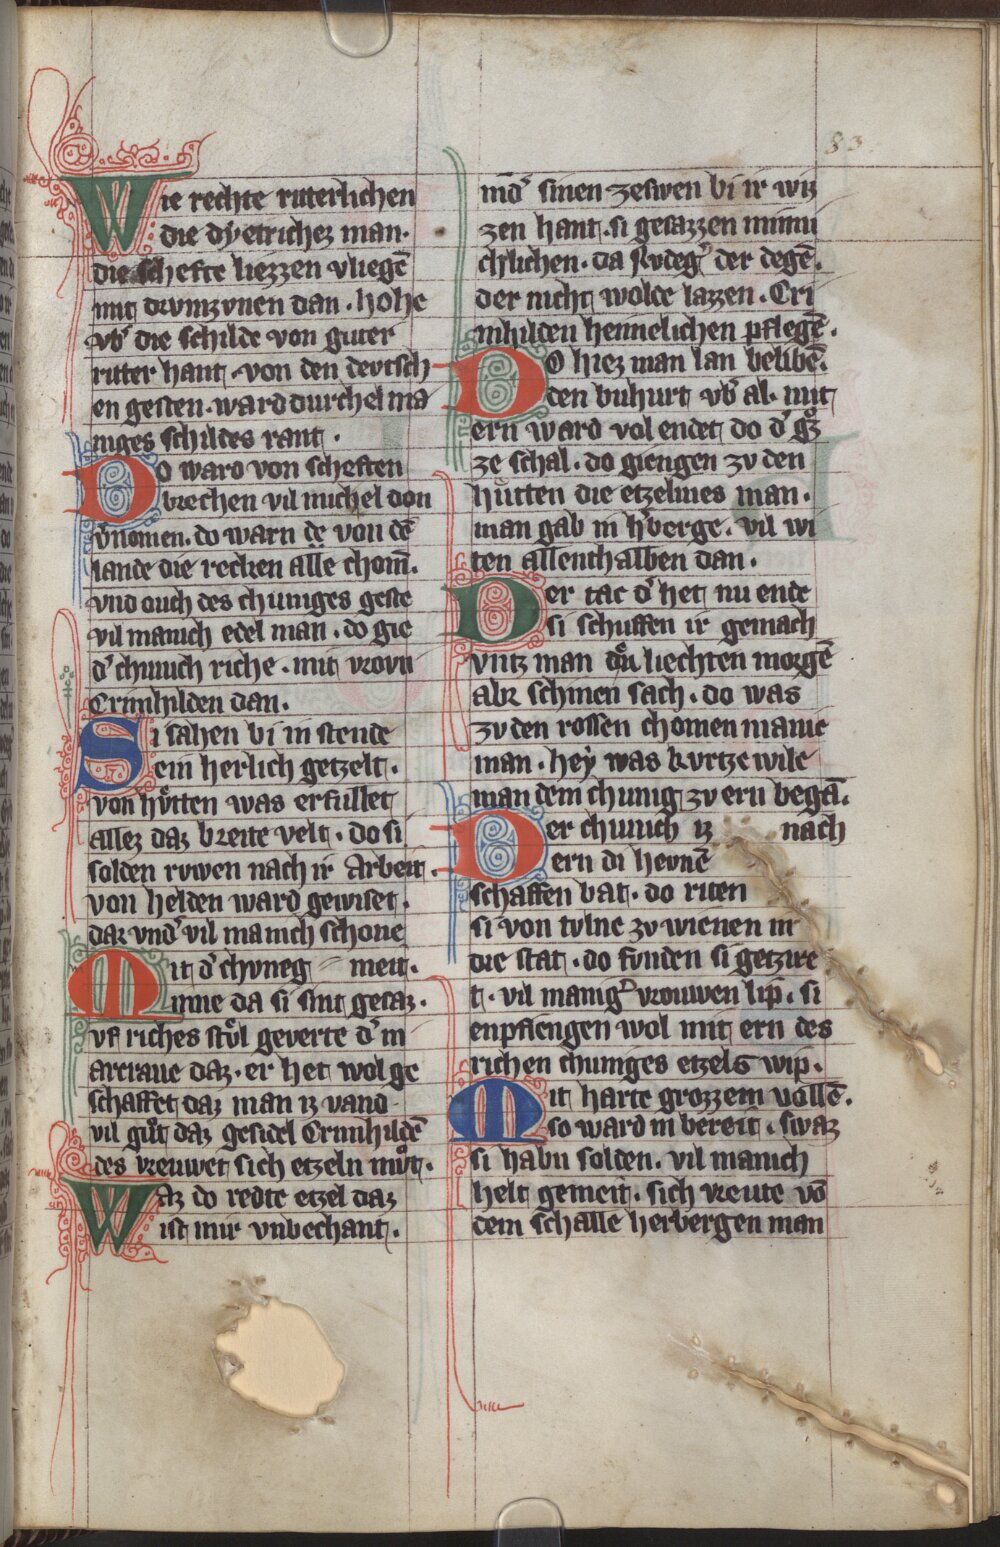 83.
Wie rechte ritterlichen
die dyetriches man.
die schefte liezzen vliegē
mit drvmzvnen dan. hohe
vb᾽ die schilde von guter
ritter hant. von den devtsch
en gesten. ward durchel ma
niges schildes rant.
Do ward von scheften
brechen vil michel don
v᾽nomen. do warn de von dē
lande die recken alle chom̄.
vnd ouch des chuniges geste
vil manich edel man. do gie
d᾽ chunich riche. mit vrovn
Crimhilden dan.
Si sahen bi in stende
ein herlich getzelt.
von hůtten was erfullet
allez daz breite velt. do si
solden rvwen nach ir Arbeit.
von helden ward gewiset.
dar vnd᾽ vil manich schone
Mit d᾽ chvneg meit.
inne da si sint gesaz.
vf riches stůl geverte d᾽ m
arcraue daz. er het wol ge
schaffet daz man iz vand
vil gůt daz gesidel Crimhildē
des vreuwet sich etzeln můt.
Waz do redte etzel daz
ist mir vnbechant.
ind᾽ sinen zeswen bi ir wiz
zen hant. si gesazzen minni
chlichen. da Rvdeg᾽ der degē.
der nicht wolde lazzen. Cri
mhilden heimelichen pflegē.
Do hiez man lan belibē.
den buhurt vb᾽ al. mit
ern ward vol endet do d᾽ gͦz
ze schal. do giengen zv den
hutten die etzelnies man.
man gab in h᾽berge. vil wi
ten allenthalben dan.
Der tac d᾽ het nu ende
si schuffen ir gemach
vntz man dn̄ liechten morgē
aber schinen sach. do was
zv den rossen chomen manic
man. hey was kvrtze wile
man dem chunig zv ern begā.
Der chunich iz nach
ern di hevnē
schaffen bat. do riten
si von tvlne zv wienen in
die stat. do funden si getzire
t. vil manig᾽ vrouwen lip. si
enpfiengen wol mit ern des
richen chuniges etzels wip.
Mit harte grozzem vollē.
so ward in bereit. swaz
si habn solden. vil manich
helt gemeit. sich vreute vō
dem schalle herbergen man